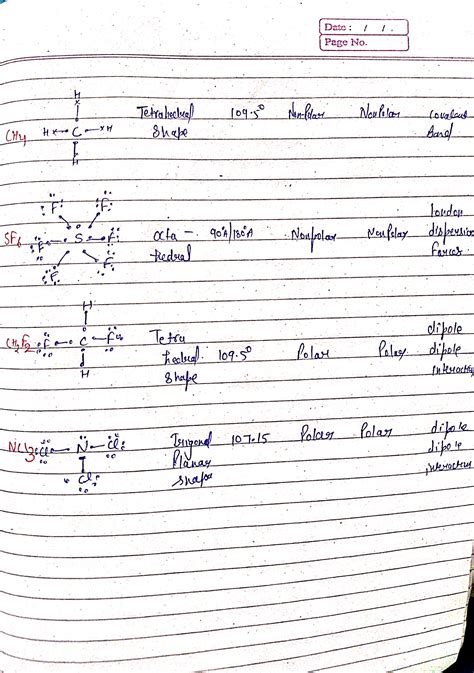 Date : / / .
Page No.
H
Tetrahedral 109.5° Non-Polar Non Polar Covalent
CH4 H C H Shape Bond
H
London
F F
SF6 F S F octa - 90°A/180°A Nonpolar Non Polar dispersion
F F hedral Forces.
H
dipole
CH2F2 F C F Tetra dipole
hedral 109.5° Polar Polar interaction
H Shape
NCl3 Cl N Cl Trigonal 107.15 Polar Polar dipole
Planar dipole
Cl shape interaction